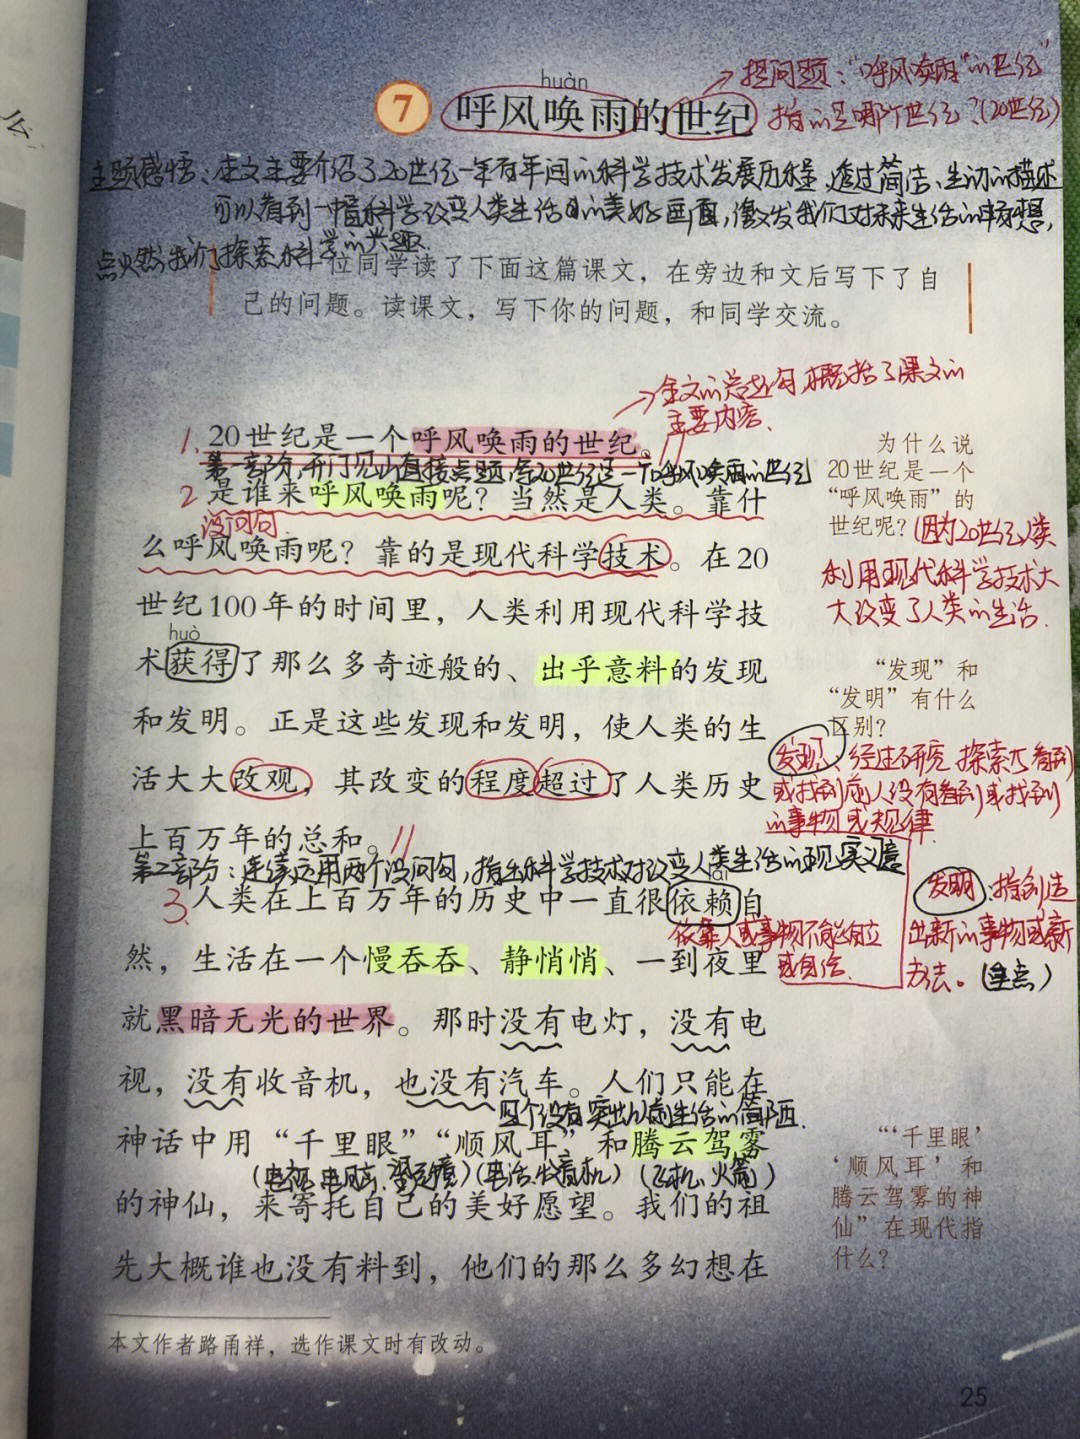 么
huàn
7 呼风唤雨的世纪
提问题："呼风唤雨"的世纪
指的是哪个世纪?(20世纪)
主题感悟：本文主要介绍了20世纪一年百年间的科学技术发展历程,透过简洁、生动的描述
可以看到一幅科学改变人类生活的美好画面,激发我们对未来生活的畅想,
点燃我们探索科学的兴趣.
位同学读了下面这篇课文，在旁边和文后写下了自
己的问题。读课文，写下你的问题，和同学交流。
全文的总起句,概括了课文的
主要内容.
1. 20世纪是一个呼风唤雨的世纪。
第一部分,开门见山直接点题,写20世纪是一个呼风唤雨的世纪
为什么说
20世纪是一个
“呼风唤雨”的
世纪呢?
(因为20世纪人类
利用现代科学技术大
大改变了人类的生活.
2 是谁来呼风唤雨呢？当然是人类。靠什
设问句
么呼风唤雨呢？靠的是现代科学技术。在20
世纪100年的时间里，人类利用现代科学技
huò
术获得了那么多奇迹般的、出乎意料的发现
和发明。正是这些发现和发明，使人类的生
活大大改观，其改变的程度超过了人类历史
上百万年的总和。
“发现”和
“发明”有什么
区别?
发现 经过研究 探索 看到
或找到前人没有看到或找到
的事物或规律
第二部分：连续运用两个设问句,指出科学技术对改变人类生活的现实意
发明:指创造
出新的事物或新
办法。(重点)
3. 人类在上百万年的历史中一直很依赖自
依靠人或事物不能自立
或自给.
然，生活在一个慢吞吞、静悄悄、一到夜里
就黑暗无光的世界。那时没有电灯，没有电
视，没有收音机，也没有汽车。人们只能在
四个没有突出以前生活的简陋.
神话中用“千里眼”“顺风耳”和腾云驾雾
(电视、望远镜)(电话、收音机)(飞机、火箭)
的神仙，来寄托自己的美好愿望。我们的祖
先大概谁也没有料到，他们的那么多幻想在
“‘千里眼’
‘顺风耳’和
腾云驾雾的神
仙”在现代指
什么?
本文作者路甬祥，选作课文时有改动。
25